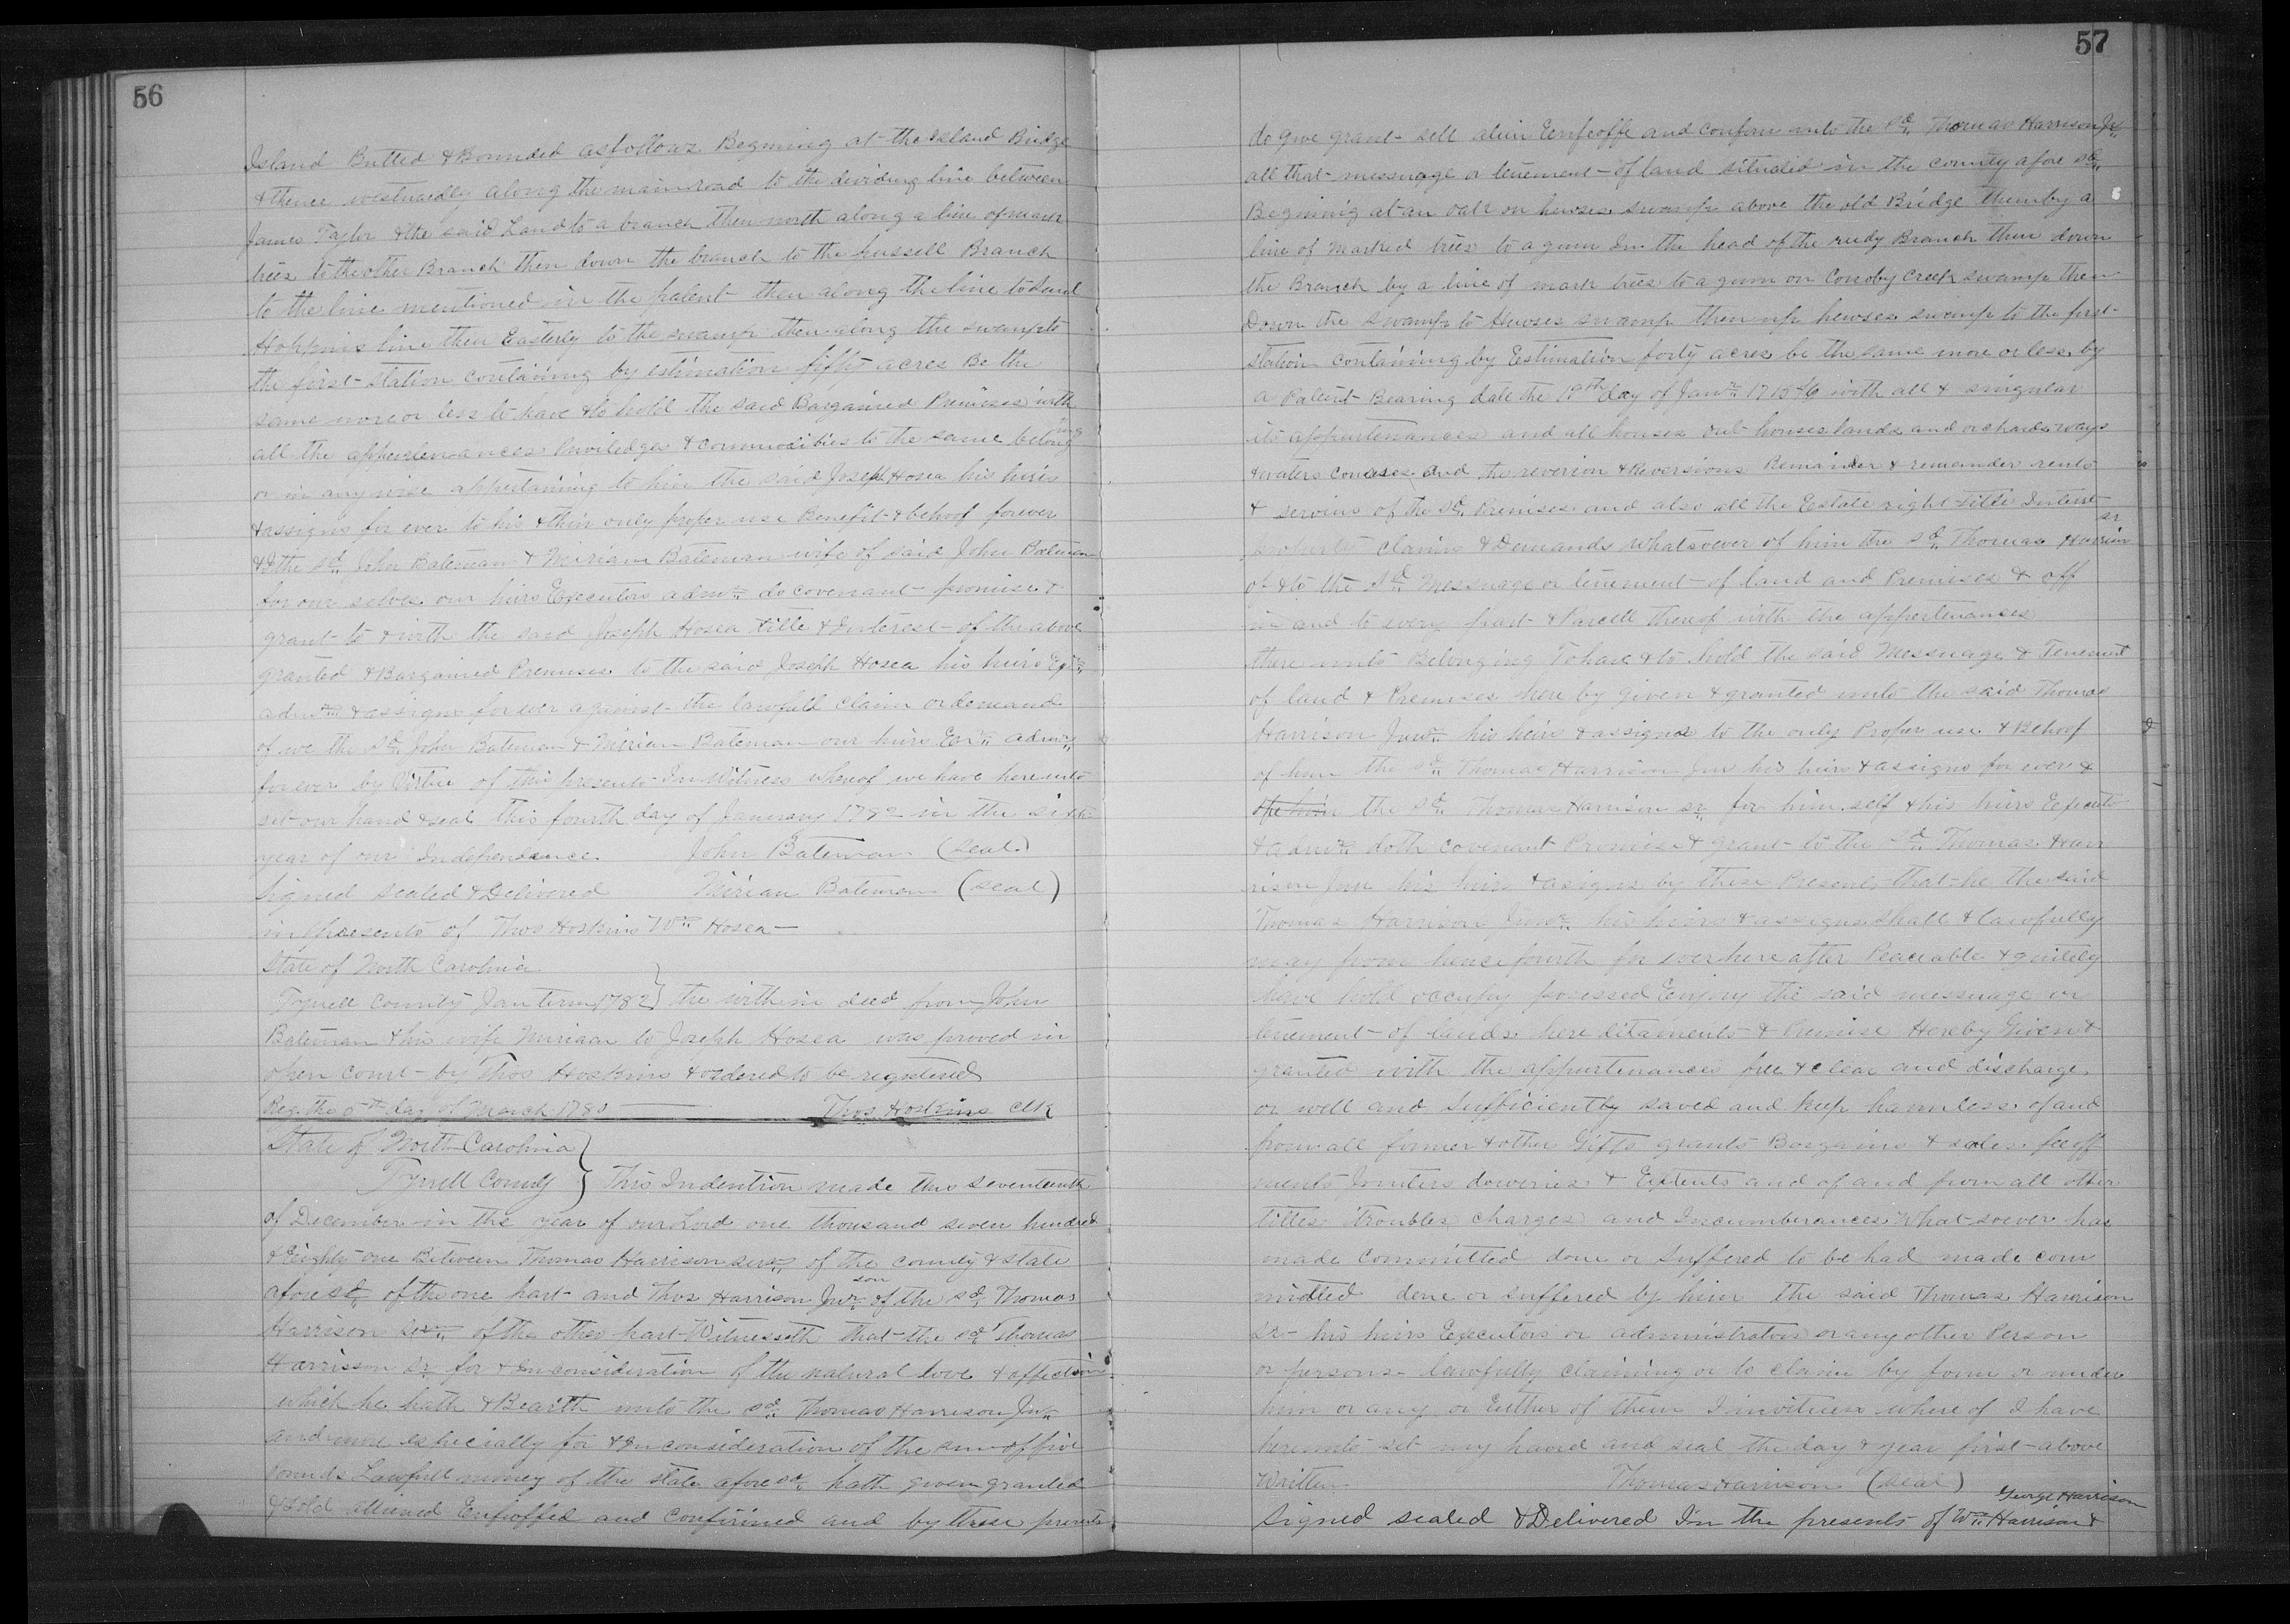 56
Island Butted & Bounded as follows Begining at the Island Bridge
& thence westwardly along the main road to the dividing line between
James Taylor & the said Land to a branch then north along a line of mark
trees to the other Branch then down the branch to the Branch
to the line mentioned in the patent then along the line to Saml
Hopkins line then Easterly to the swamp then along the swamp to
the first station containing by estimation fifty acres Be the
same more or less to have & to hold the said Bargained Premises with
all the appurtenances Priviledges & commodities to the same belonging
or in any wise appertaining to him the said Joseph Hosea his heirs
& assigns for ever to his & their only proper use Benefit & behoof forever
& I the sd John Bateman & Miriam Bateman wife of said John Bateman
for our selves our heirs Executors admrs do covenant promise &
grant to & with the said Joseph Hosea title & Interest of the above
granted & Bargained Premises to the said Joseph Hosea his heirs Exrs
admrs & assigns forever against the lawfull claim or demand
of we the sd John Bateman & Mirian Bateman our heirs Exrs admrs
forever by Virtue of this presents In Witness whereof we have hereunto
set our hand & seal this fourth day of January 1782 in the sixth
year of our Independance John Bateman (Seal)
Signed sealed & Delivered Mirian Bateman (seal)
in presents of Thos Hoskins Wm Hosea
State of North Carolina
Tyrrell County Jan term 1782 } the within deed from John
Bateman & his wife Miriaan to Joseph Hosea was proved in
open court by Thos Hoskins & ordered to be registered
Reg. the day of March 178 Thos Hoskins Clk
State of North Carolina }
Tyrrell County } This Indention made this seventeenth
of December in the year of our Lord one thousand seven hundred
& Eighty one Between Thomas Harrison senr of the county & state
afore sd of the one part and Thos Harrison Junr son of the sd Thomas
Harrison senr of the other part Witnesseth that the sd Thomas
Harrisson Sr for & in consideration of the natural love & affection
which he hath & Bearth unto the sd Thomas Harrison Junr
and more especially for & in consideration of the sum of five
Pounds Lawfull money of the state afore sd hath given granted
& sold aliened Enfeoffed and confirmed and by these presents
57
do give grant sell alien Eenfeoffe and confirm unto the sd Thomas Harrison Jr
all that messuage or tenement of land situated in the county afore sd
Begining at an oak on hewses swamp above the old Bridge then by a
line of Marked trees to a gum In the head of the reedy Branch then down
the Branch by a line of mark trees to a gum on Conoby Creek swamp then
Down the swamp to Hewses swamp then up hewses swamp to the first
station containing by Estimation forty acres be the same more or less by
a Patent Bearing date the day of Janr with all & singular
its appurtenances and all houses out houses lands and orchards ways
& waters courses and the reverion & Reversions Remainder & remainder rents
& servius of the sd Premises and also all the Estate right title Interest
property claims & Demands whatsoever of him the sd Thomas Harrison sr
of & to the sd Messuage or tenement of land and Premises & off
in and to every part & Parcell thereof with the appertenances
there unto Belonging To have & to hold the said Messuage & Tenement
of land & Premises here by given & granted unto the said Thomas
Harrison Junr his heirs & assigns to the only Proper use & Behoof
of him the sd Thomas Harrison Jun his heirs & assigns for ever &
the sd Thomas Harrison sr for him self & his heirs Executo
& admrs doth covenant Promise & grant to the sd Thomas Harr
rison Jun his heirs & asigns by these Presents that he the said
Thomas Harrison Junr his heirs & assigns shall & lawfully
may from hence fourth for ever here after Peaceable & quitely
have hold occupy posessed Enjoy the said messuage or
tenement of lands here ditaments & Premise Hereby Given &
granted with the appurtenances free & clear and discharge
or well and sufficiently saved and keep harmless of and
from all former & other Gifts grants Bargains & sales feoff
ments Jointers doweries & Extents and of and from all other
titles troubles charges and Incumberances What soever has
made Committed done or suffered to be had made com
midted done or suffered by him the said Thomas Harrison
Sr his heirs Executors or administrators or any other Person
or persons lawfully claiming or to claim by form or under
him or any or Either of them I witness where of I have
hereunto set my hand and seal the day & year first above
Written Thomas Harrison (seal)
Signed sealed & Delivered In the presents of Wm Harrison & George Harrison